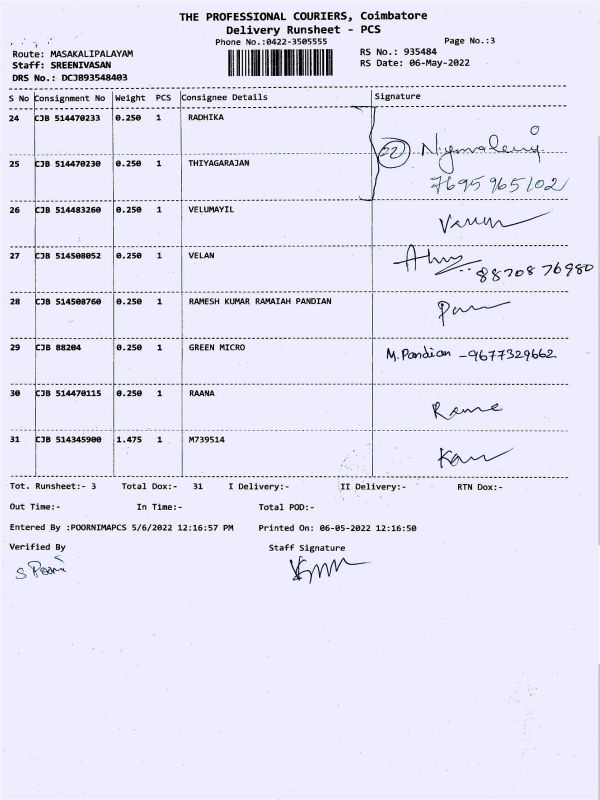 THE PROFESSIONAL COURIERS, Coimbatore
Delivery Runsheet - PCS
Phone No.:0422-3505555
Page No.:3
Route: MASAKALIPALAYAM
RS No.: 935484
Staff: SREENIVASAN
RS Date: 06-May-2022
DRS No.: DCJB93548403
S No Consignment No Weight PCS Consignee Details Signature
24 CJB 514470233 0.250 1 RADHIKA
22
25 CJB 514470230 0.250 1 THIYAGARAJAN
7695965102
26 CJB 514483260 0.250 1 VELUMAYIL
27 CJB 514508052 0.250 1 VELAN
8870876980
28 CJB 514508760 0.250 1 RAMESH KUMAR RAMAIAH PANDIAN
29 CJB 88204 0.250 1 GREEN MICRO M.Pandian -9677329662
30 CJB 514470115 0.250 1 RAANA
31 CJB 514345900 1.475 1 M739514
Tot. Runsheet:- 3 Total Dox:- 31 I Delivery:- II Delivery:- RTN Dox:-
Out Time:- In Time:- Total POD:-
Entered By :POORNIMAPCS 5/6/2022 12:16:57 PM Printed On: 06-05-2022 12:16:50
Verified By Staff Signature